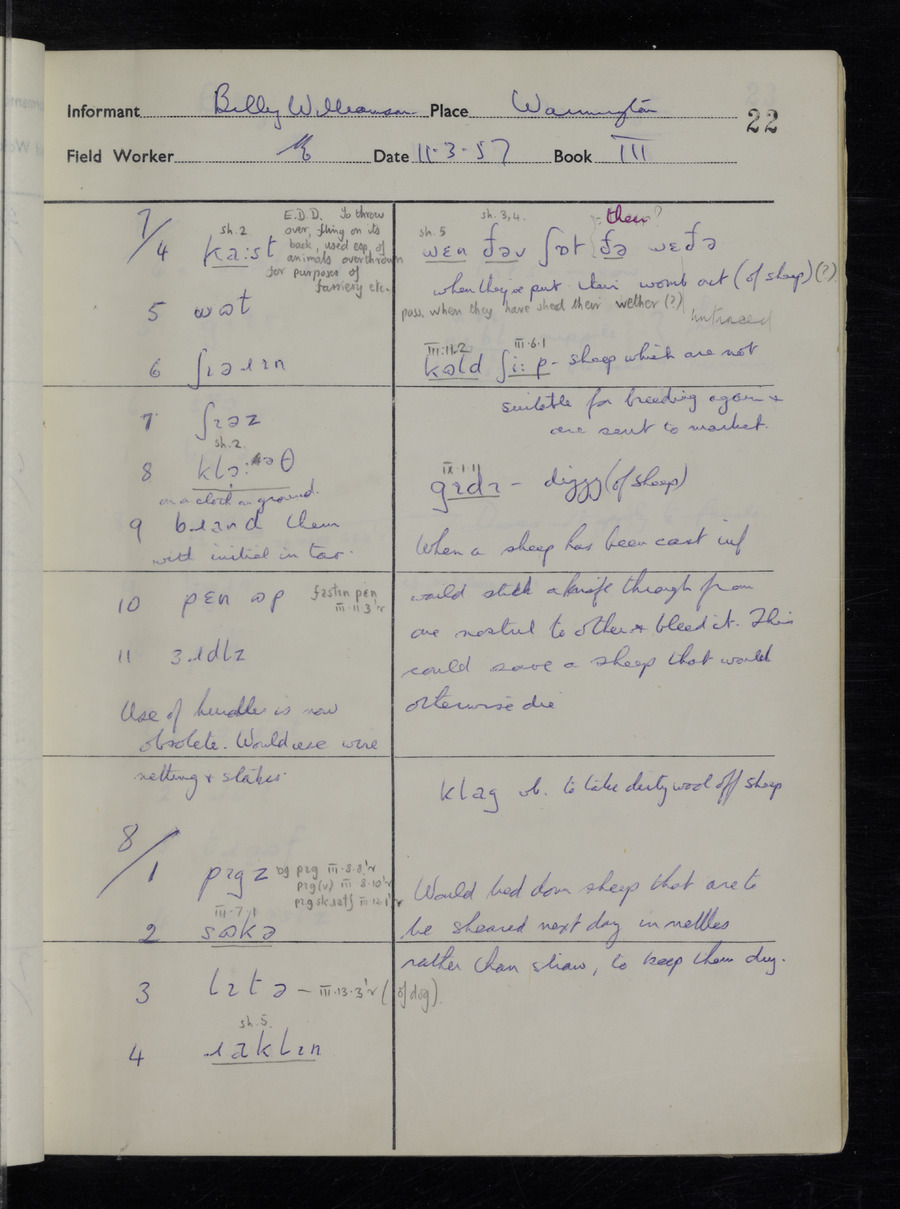 Informant Billy Williamson Place Warmington
22
Field Worker Date 11-3-57 Book III
7/4 ka:st
sh. 2
E.D.D. To throw
over, fling on its
back, used esp. of
animals overthrown
for purposes of
farriery etc.
5 wɷt
6 ʃɪəɹɪn
7 ʃɪəz
sh. 2.
8 θ
on a clock on ground.
9 bɹand them
with initial in tar.
10 pɛn ɷp fɪstɪn pɛn
III·11·3'r
11 ɜɹdlz
Use of hurdles is now
obsolete. Would use wire
netting & stakes.
8/1 pɪgz pɪg III·8·8'r
pɪg(v) III 8·10'r
III·12·1'r
III·7·1
2 sɷkə
3 lɪtə – III·13·3'r (of dog)
sh. 5.
4 ɹaklɪn
sh. 3, 4. them?
sh. 5
wɛn ðəv ʃɒt ðə wɛðə
when they've put their womb out (of sheep) (?)
poss. when they have shed their wether (?) untraced
III·11·2 III·6·1
kəld ʃi:p - sheep which are not
suitable for breeding again &
are sent to market.
IX·1·11
gɪdɪ – dizzy (of sheep)
When a sheep has been cast inf
would stick a knife through from
one nostril to other & bleed it. This
could save a sheep that would
otherwise die
klag vb. to take dirty wool off sheep
Would bed down sheep that are to
be sheared next day in nettles
rather than straw, to keep them dry.